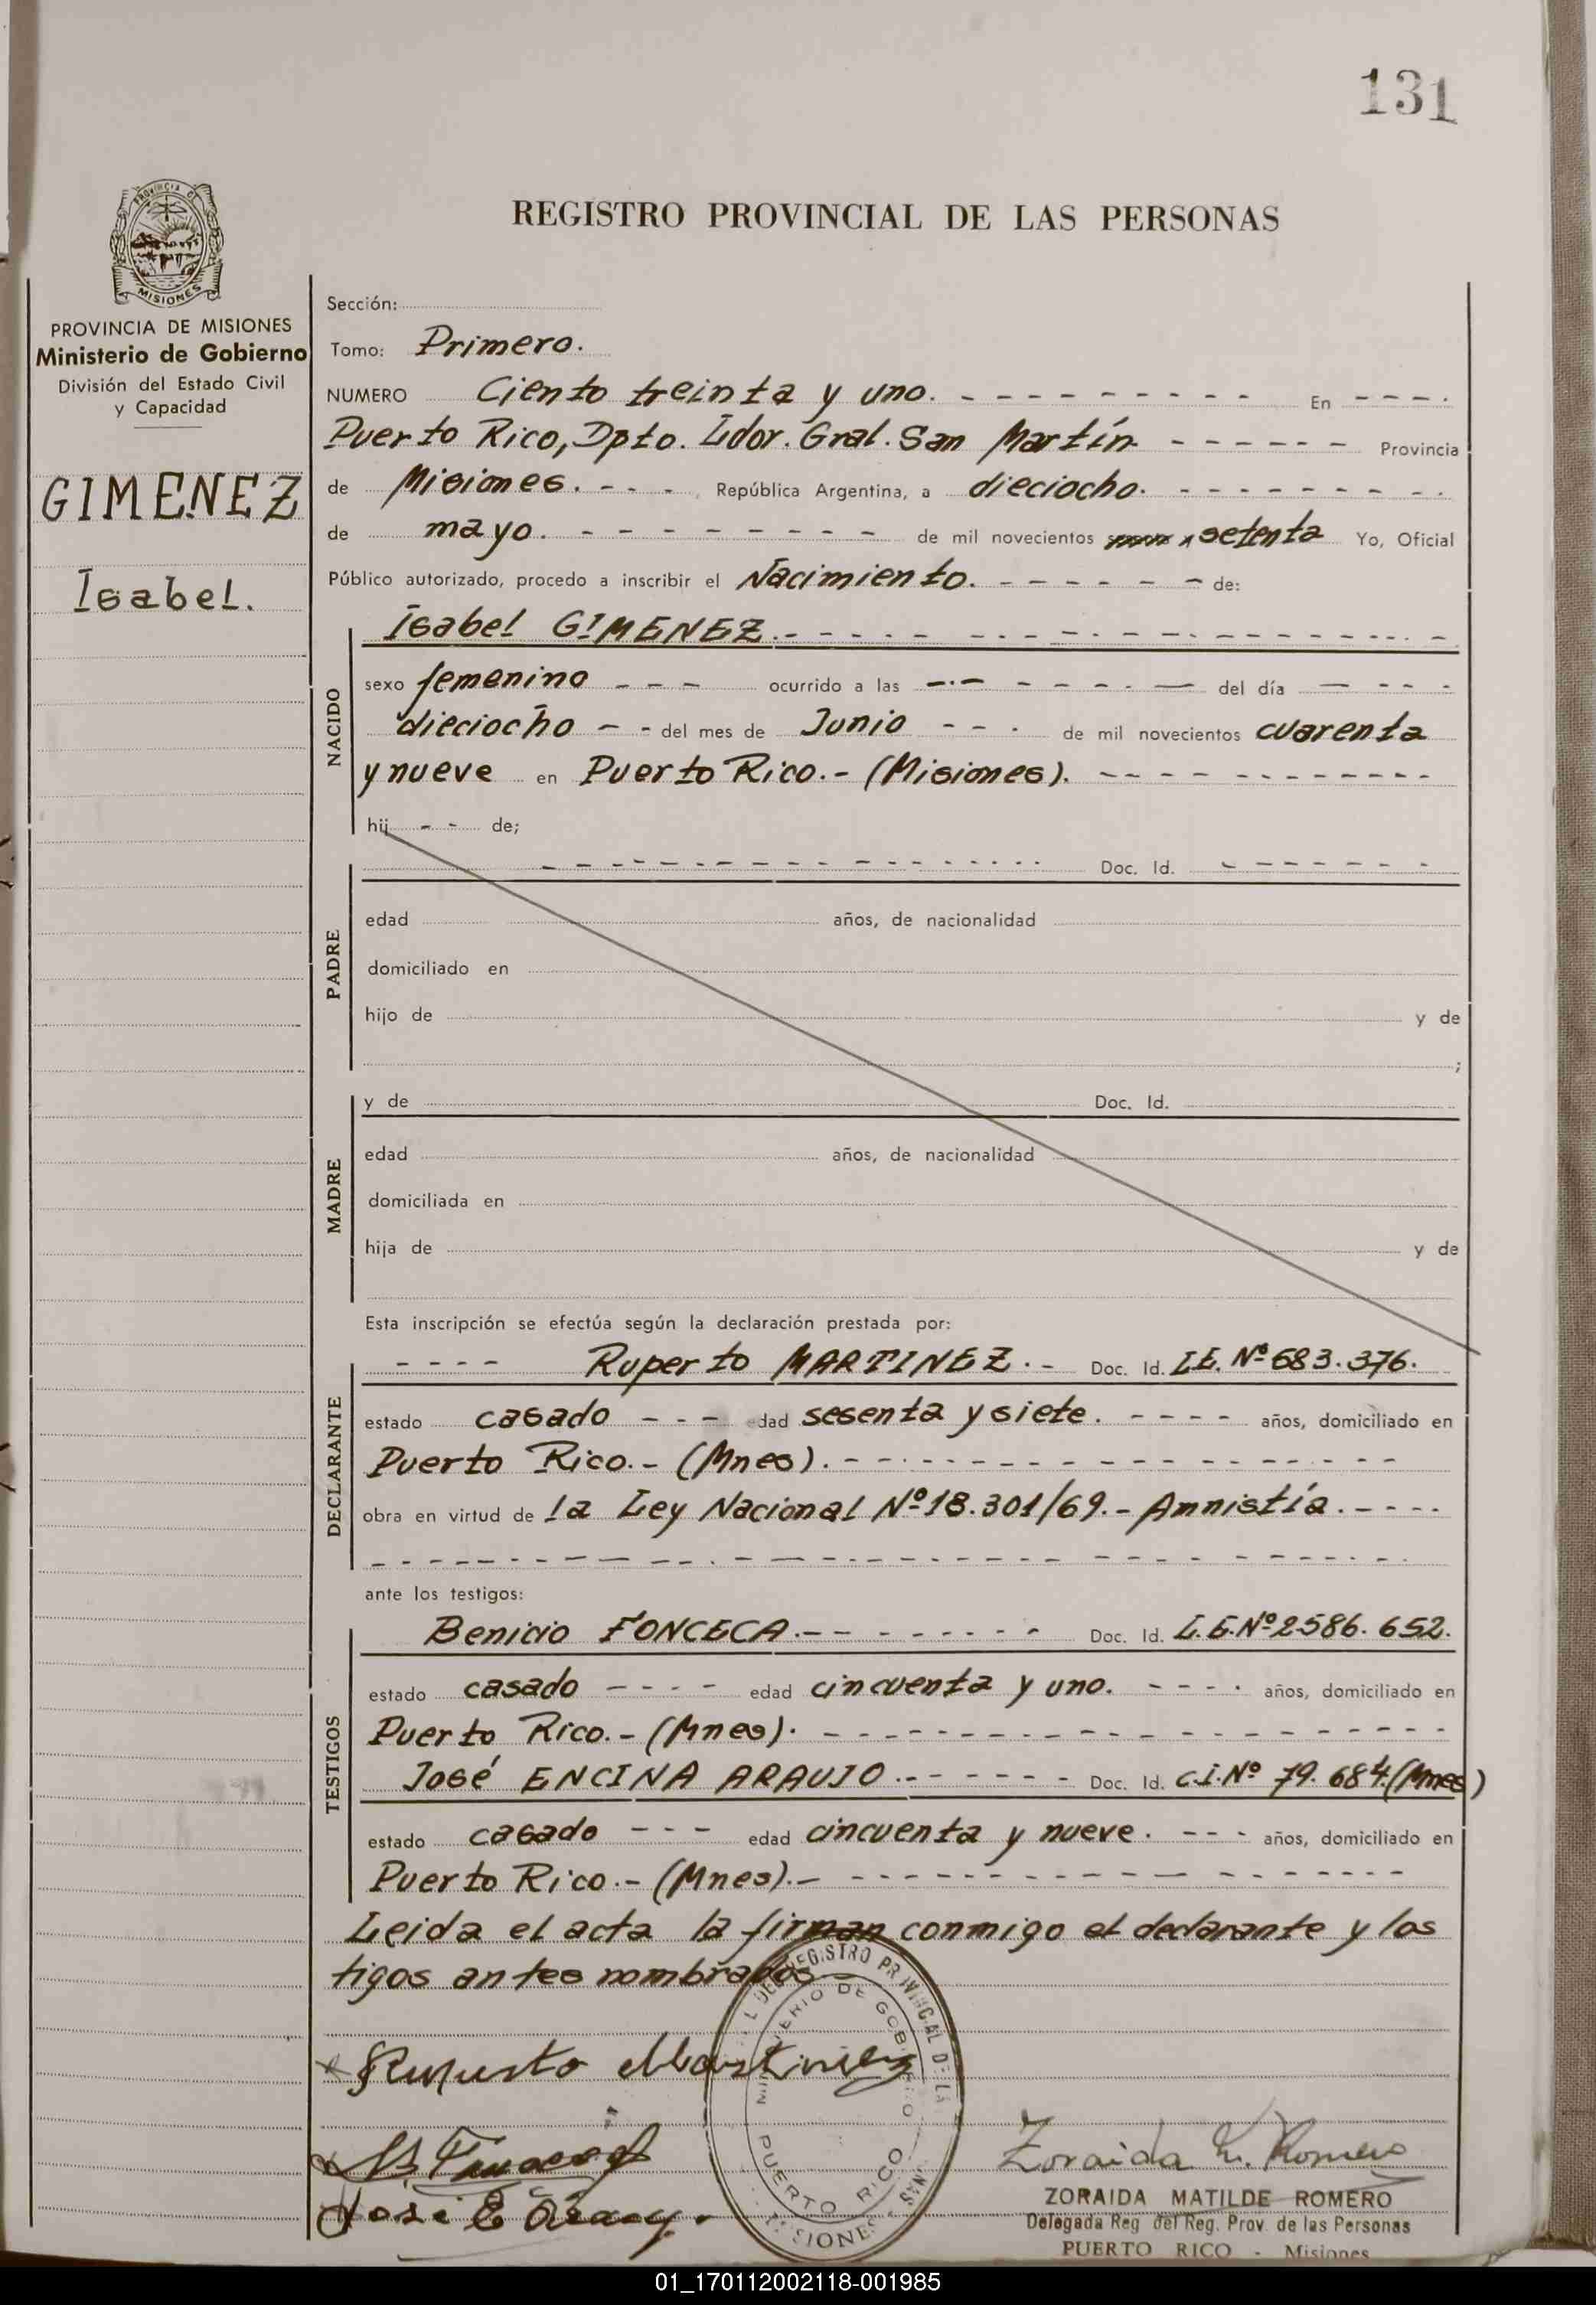 131
REGISTRO PROVINCIAL DE LAS PERSONAS
PROVINCIA DE MISIONES
Ministerio de Gobierno
División del Estado Civil
y Capacidad
GIMENEZ
Isabel.
Sección:
Tomo: Primero.
NUMERO Ciento treinta y uno. - - - - - - - - - En - - - -.
Puerto Rico, Dpto. Ldor. Gral. San Martín - - - - - - Provincia
de Misiones. - - - - República Argentina, a dieciocho. - - - - - - - - -
de mayo. - - - - - - - - - de mil novecientos setenta Yo, Oficial
Público autorizado, procedo a inscribir el Nacimiento. - - - - - - de:
Isabel GIMENEZ. - - - - - - - - - - - - - - - - -
NACIDO
sexo femenino - - - ocurrido a las - - - - - - - del día - - - -
dieciocho - - del mes de Junio - - - de mil novecientos cuarenta
y nueve en Puerto Rico.- (Misiones). - - - - - - - - - - -
hij - - de;
PADRE
- - - - - - - - - - - - - - - - Doc. Id. - - - - - - -
edad años, de nacionalidad
domiciliado en
hijo de y de
;
MADRE
y de Doc. Id.
edad años, de nacionalidad
domiciliada en
hija de y de
Esta inscripción se efectúa según la declaración prestada por:
DECLARANTE
- - - - Ruperto MARTINEZ. - Doc. Id. L.E. Nº 683.376.
estado casado - - - edad sesenta y siete. - - - - años, domiciliado en
Puerto Rico.- (Mnes). - - - - - - - - - - - - - - - -
obra en virtud de la Ley Nacional Nº 18.301/69.- Amnistía. - - - -
- - - - - - - - - - - - - - - - - - - - - - - -
ante los testigos:
TESTIGOS
Benicio FONCECA. - - - - - - - - Doc. Id. L.E. Nº 2586.652.
estado casado - - - - edad cincuenta y uno. - - - - años, domiciliado en
Puerto Rico.- (Mnes). - - - - - - - - - - - - - - - -
José ENCINA ARAUJO. - - - - - - Doc. Id. C.I. Nº 79.684.(Mnes)
estado casado - - - edad cincuenta y nueve. - - - años, domiciliado en
Puerto Rico.- (Mnes).- - - - - - - - - - - - - - - -
Leida el acta la firman conmigo el declarante y los
tigos antes nombrados.-
Ruperto Martinez
Zoraida M. Romero
ZORAIDA MATILDE ROMERO
Delegada Reg del Reg. Prov. de las Personas
PUERTO RICO - Misiones
01_170112002118-001985